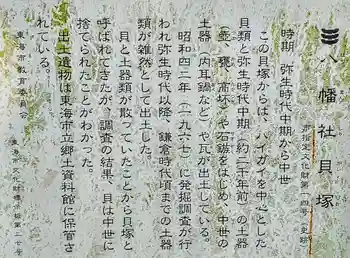 三ツ八幡社貝塚
市指定文化財第一四号(史跡)
時期 弥生時代中期から中世
この貝塚からは、ハイガイを中心とした
貝類と弥生時代中期(約二千年前)の土器
(壺、甕、高坏)や石鏃をはじめ、中世の
土器(内耳鍋など)や瓦が出土している。
昭和四二年(一九六七)に発掘調査が行
われ弥生時代以降、鎌倉時代頃までの土器
類が雑然として出土した。
貝と土器類が散っていたことから貝塚と
呼ばれてきたが、調査の結果、貝は中世に
捨てられたことがわかった。
出土遺物は東海市立郷土資料館に保管さ
れている。
東海市教育委員会
東海市文化財標示第二七号